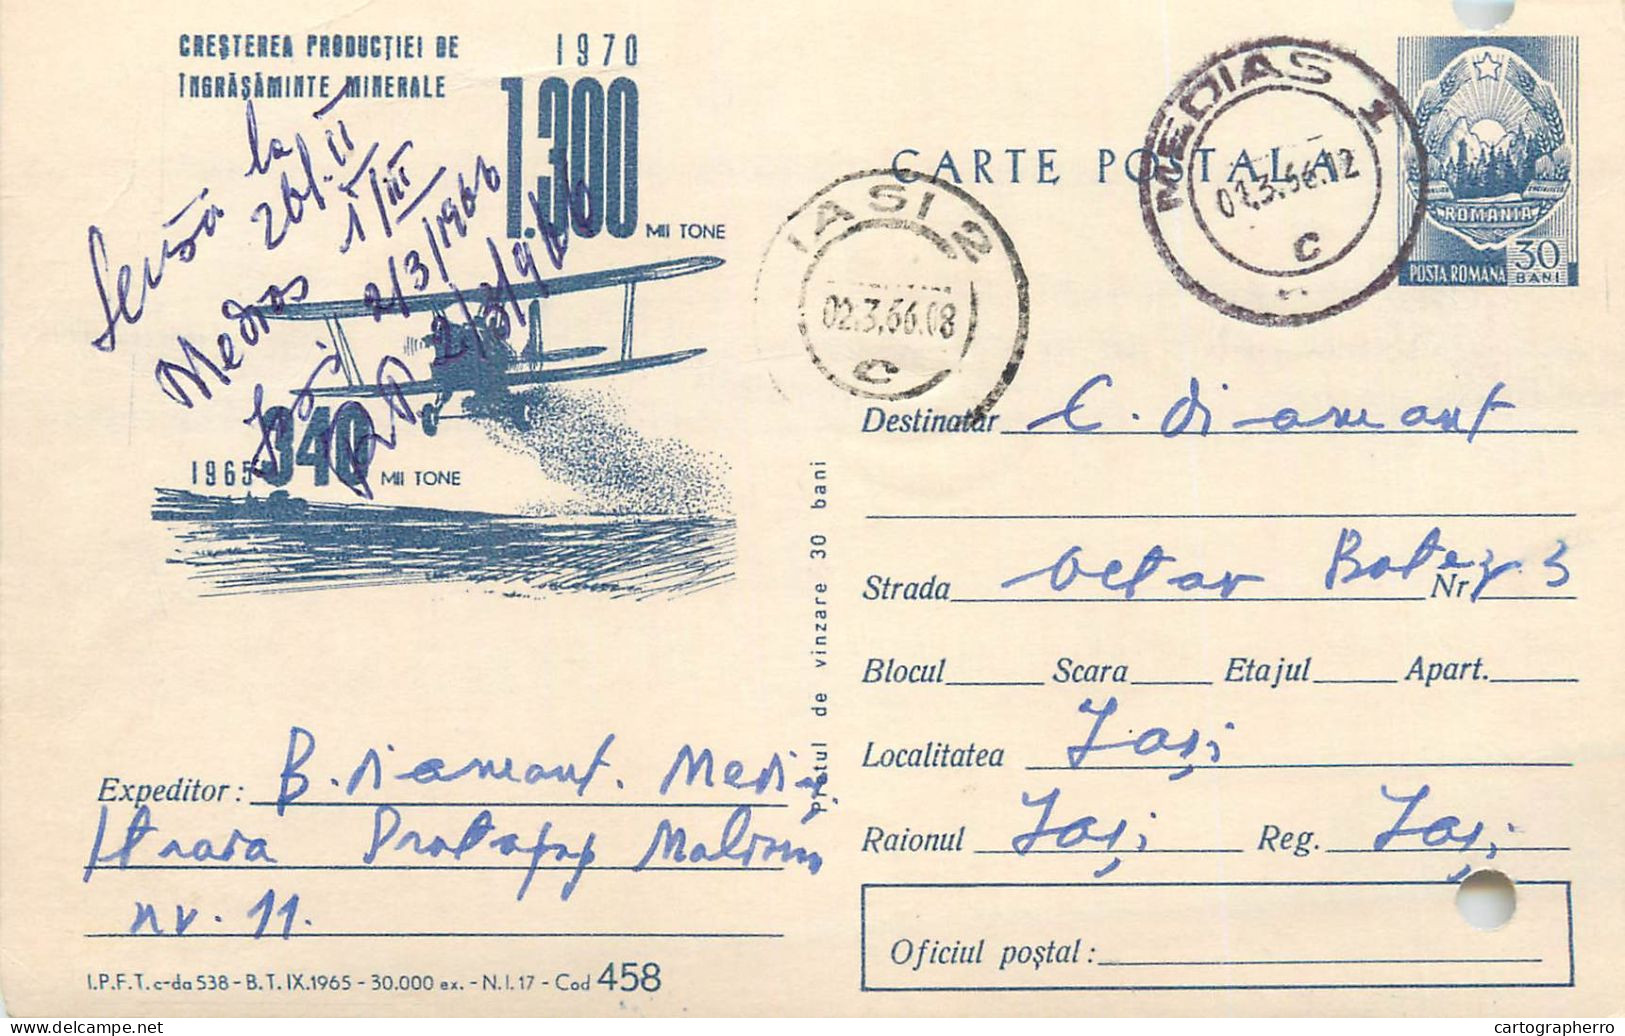 CREȘTEREA PRODUCȚIEI DE
ÎNGRĂȘĂMINTE MINERALE
1970
1.300 MII TONE
la
26/.II
1/III
2/3/1966
2/3/1966
1965 340 MII TONE
CARTE POSTALA
IASI 2
02.3.66.08
C
MEDIAS 1
C
ROMANIA
POSTA ROMANA 30 BANI
Destinatar C. Diamant
Strada Octav Botez Nr. 3
Blocul Scara Etajul Apart.
Localitatea Iași
Raionul Iași Reg. Iași
Oficiul poștal:
Prețul de vinzare 30 bani
Expeditor: B. Diamant.
nr. 11.
I.P.F.T. c-da 538 - B.T. IX.1965 - 30.000 ex. - N.I. 17 - Cod 458
cartographerro